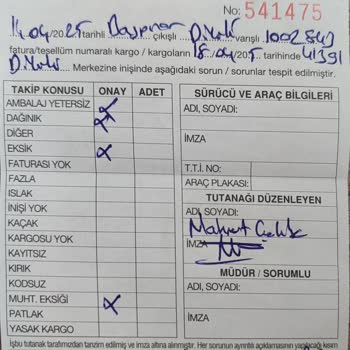 No: 541475
14/04/2025 tarihli çıkışlı D.Yolı varışlı
fatura/tesellüm numaralı kargo / kargoların 18/04/2025 tarihinde 41391
D.Yolı Merkezine inişinde aşağıdaki sorun / sorunlar tespit edilmiştir.
TAKİP KONUSU ONAY ADET
AMBALAJ YETERSİZ X
DAĞINIK X
DİĞER
EKSİK X
FATURASI YOK
FAZLA
ISLAK
İNİŞİ YOK
KAÇAK
KARGOSU YOK
KAYITSIZ
KIRIK
KODSUZ
MUHT. EKSİĞİ X
PATLAK
YASAK KARGO
SÜRÜCÜ VE ARAÇ BİLGİLERİ
ADI, SOYADI:
İMZA
T.T.İ NO:
ARAÇ PLAKASI:
TUTANAĞI DÜZENLEYEN
ADI, SOYADI:
İMZA
MÜDÜR / SORUMLU
ADI, SOYADI:
İMZA
İşbu tutanak tarafımızdan tanzim edilmiş ve imza altına alınmıştır. Her sorunun ayrıntılı açıklamasının yapılacağı kısım